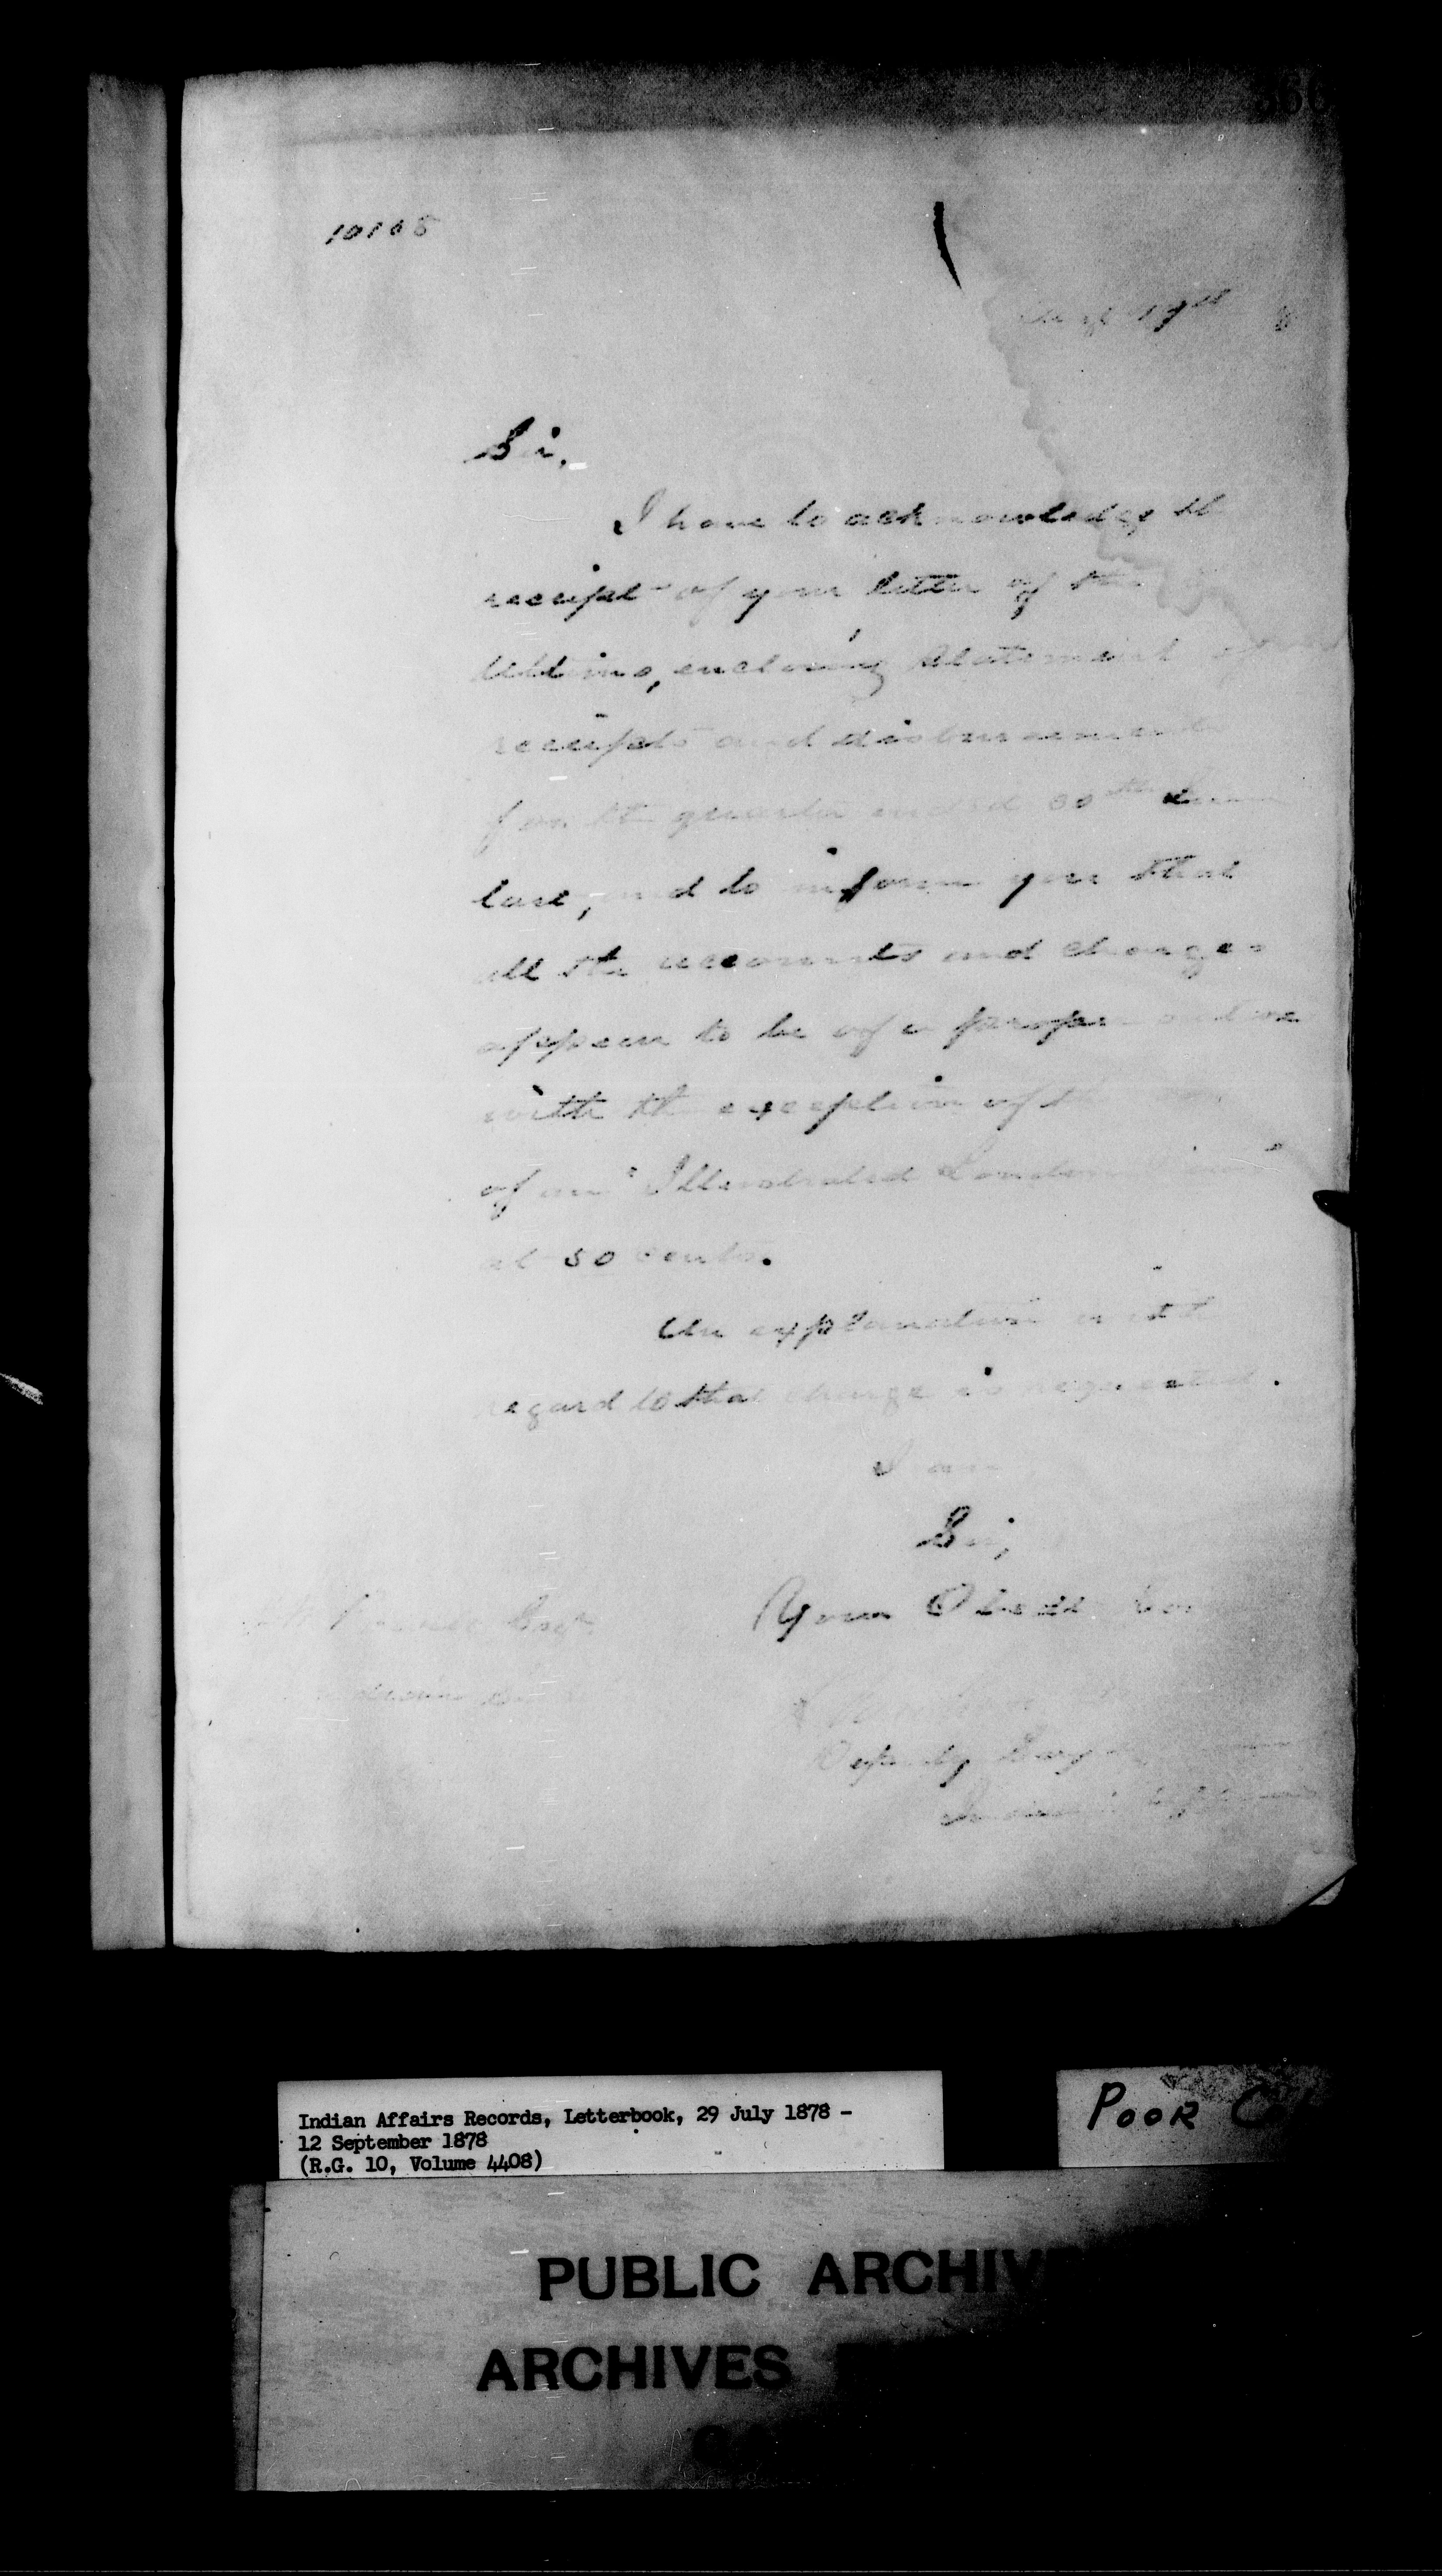 66
10168
Augt 19th
Sir,
I have to acknowledge the
receipt of your letter of the
Ultimo, enclosing statement of
receipts and disbursements
for the quarter ended 30th June
last, and to inform you that
all the accounts and charges
appear to be of a proper nature
with the exception of the
of an "Illustrated London News"
at 50 cents.
An explanation with
regard to that charge is requested.
I am
Sir,
Your Obedt
Powell Esqr
Deputy
Indian Affairs Records, Letterbook, 29 July 1878 -
12 September 1878
(R.G. 10, Volume 4408)
POOR
PUBLIC ARCHIVE
ARCHIVES